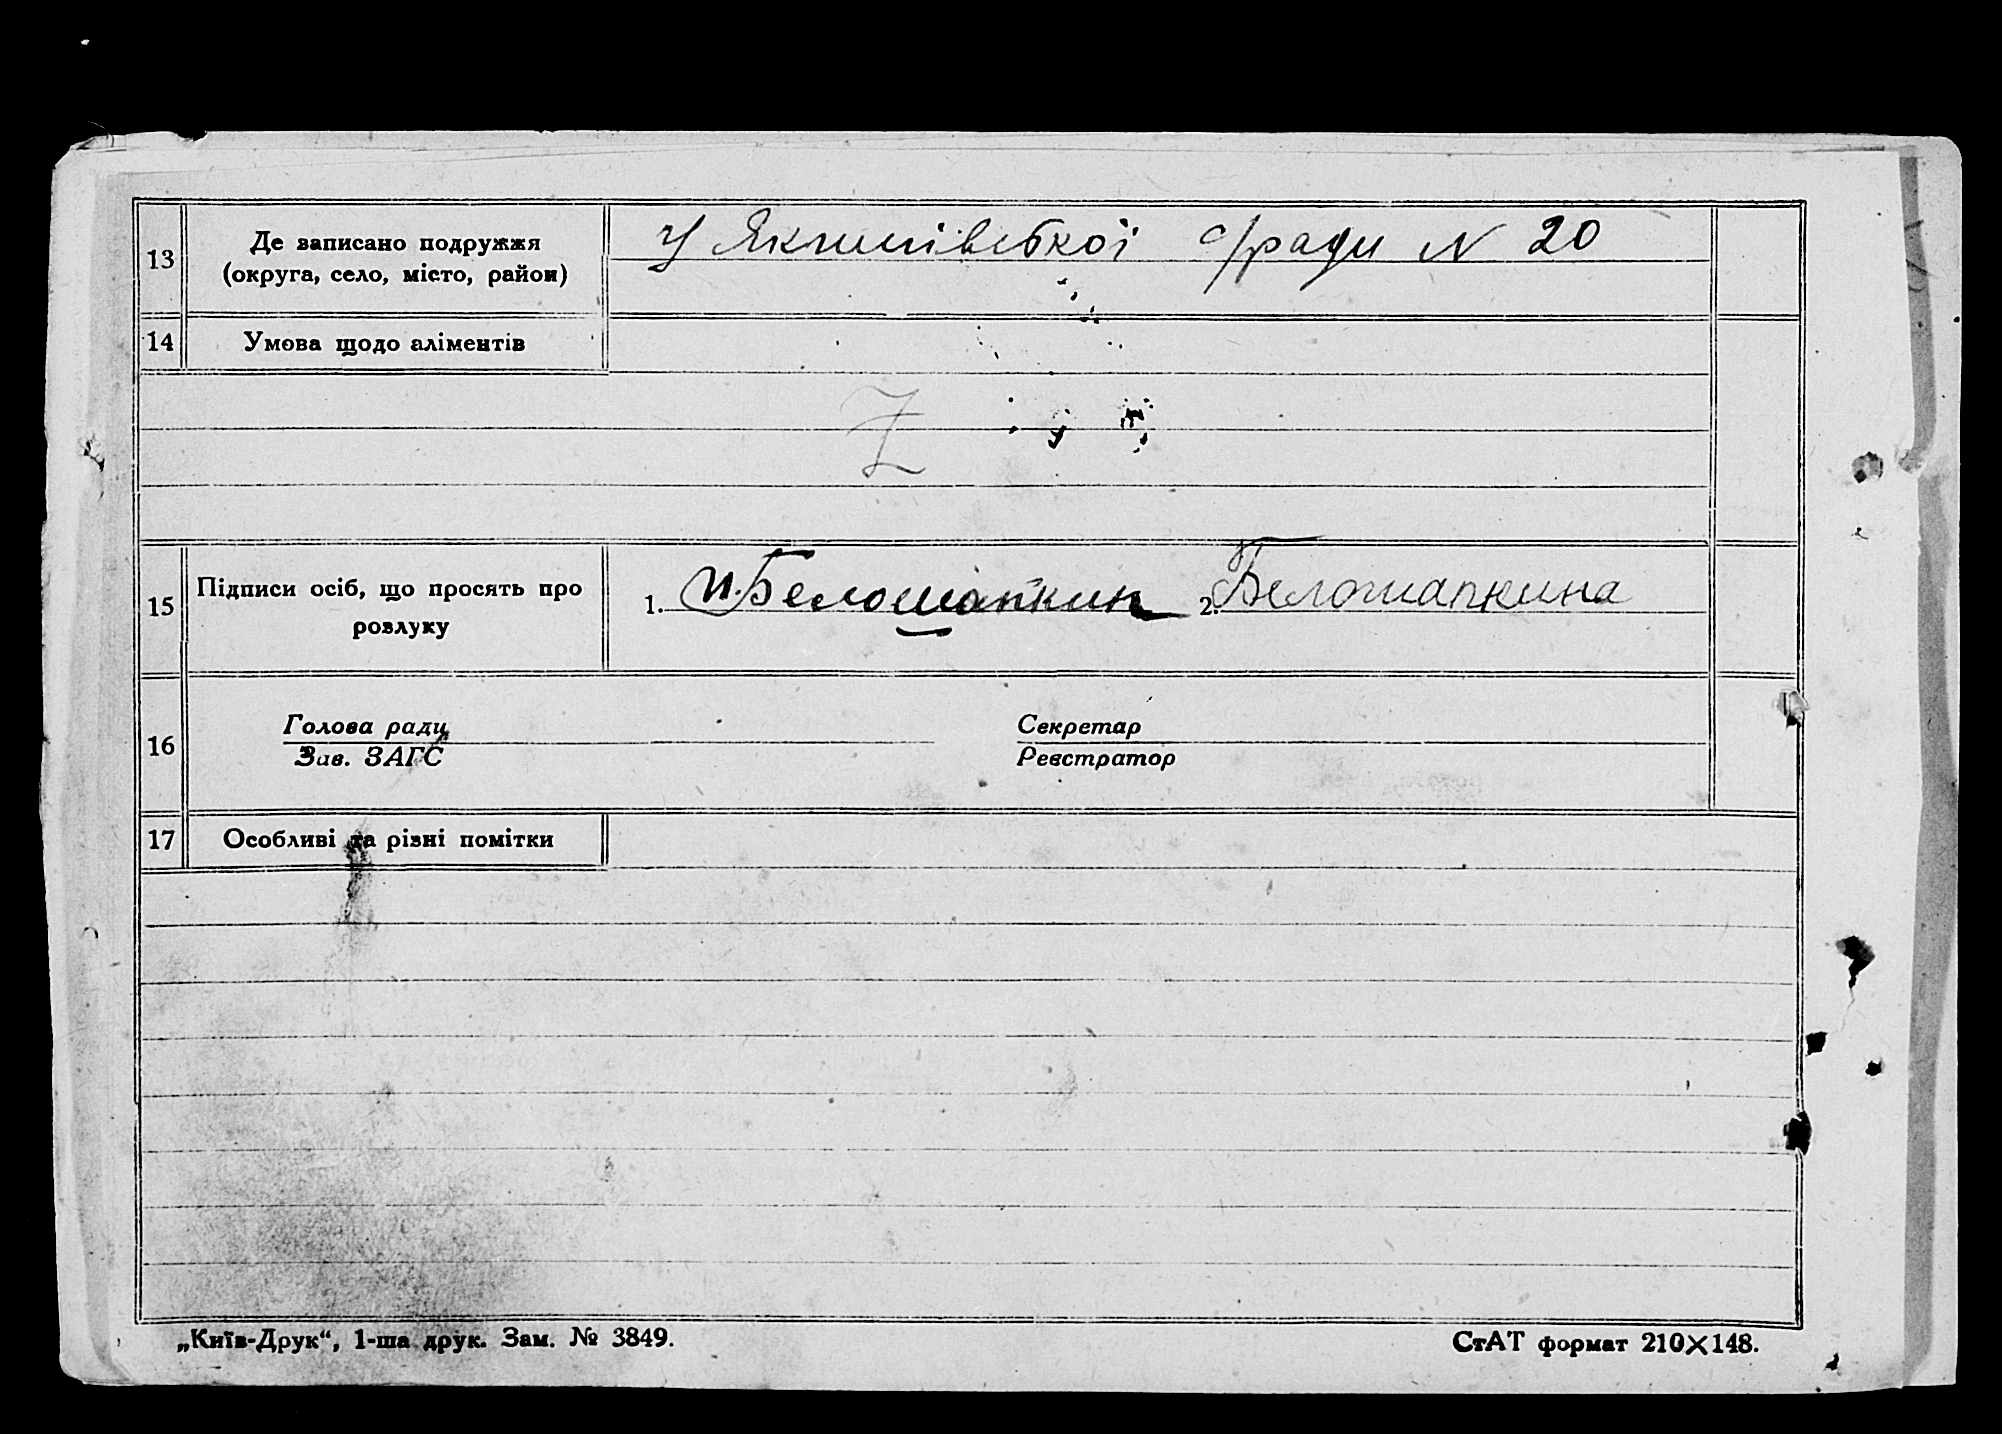 13
Де записано подружжя
(округа, село, місто, район)
У Якимівської с/ради N 20
14
Умова щодо аліментів
Z
15
Підписи осіб, що просять про
розлуку
1. И.Белошапкин 2. Белошапкина
16
Голова ради Секретар
Зав. ЗАГС Реєстратор
17
Особливі та різні помітки
„Київ-Друк“, 1-ша друк. Зам. № 3849.
СтАТ формат 210×148.